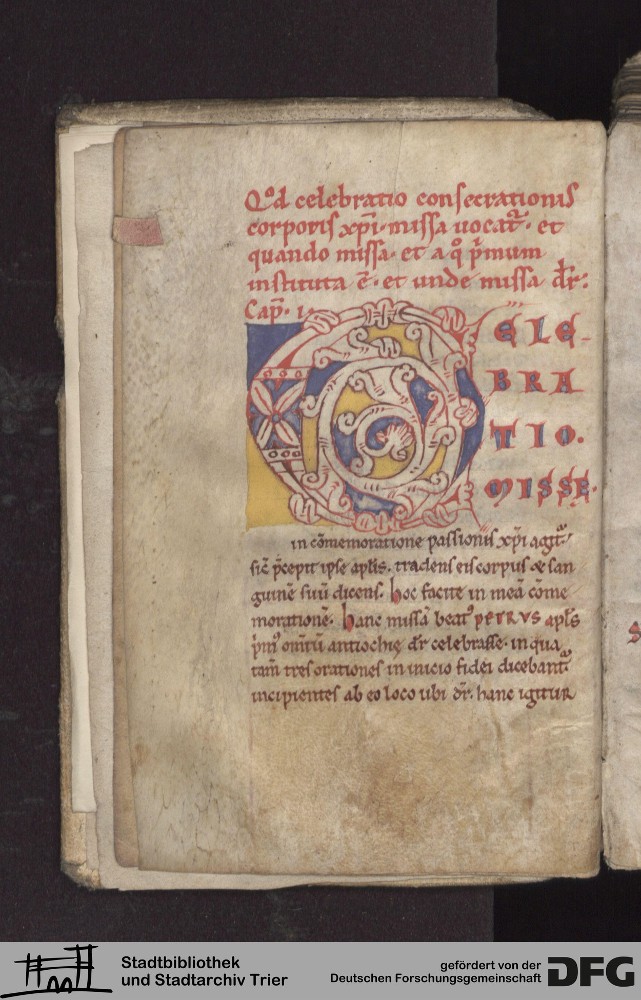 Qᵒd celebratio consecrationis
corporis xp̄i · missa uocat᷑ · et
quando missa · et a qͦ p̄mum
instituta ē · et unde missa dr̄:
Cap̄ · i ·
C ELE-
BRA
TIO.
MISSE.
in cōmemoratione passionis xp̄i agit᷑ ·
sic̄ p̄cepit ipse apl̄is. tradens eis corpus & san
guinē suū dicens. hoc facite in meā cōme
morationē. hanc missā beatꝰ PETRVS apl̄s
p̄mꝰ om̄iū antiochię dr̄ celebrasse · in qua
tam̄ tres orationes in inicio fidei dicebant᷑
incipientes ab eo loco ubi dr̄. hanc igitur
Stadtbibliothek
und Stadtarchiv Trier
gefördert von der
Deutschen Forschungsgemeinschaft
DFG